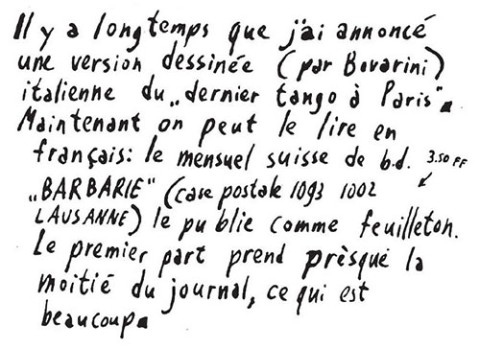 Il y a longtemps que j'ai annoncé
une version dessinée (par Bovarini)
italienne du „dernier tango à Paris".
Maintenant on peut le lire en
français: le mensuel suisse de b.d. 3.50 FF
„BARBARIE" (case postale 1093 1002
LAUSANNE) le publie comme feuilleton.
Le premier part prend prèsque la
moitié du journal, ce qui est
beaucoup.